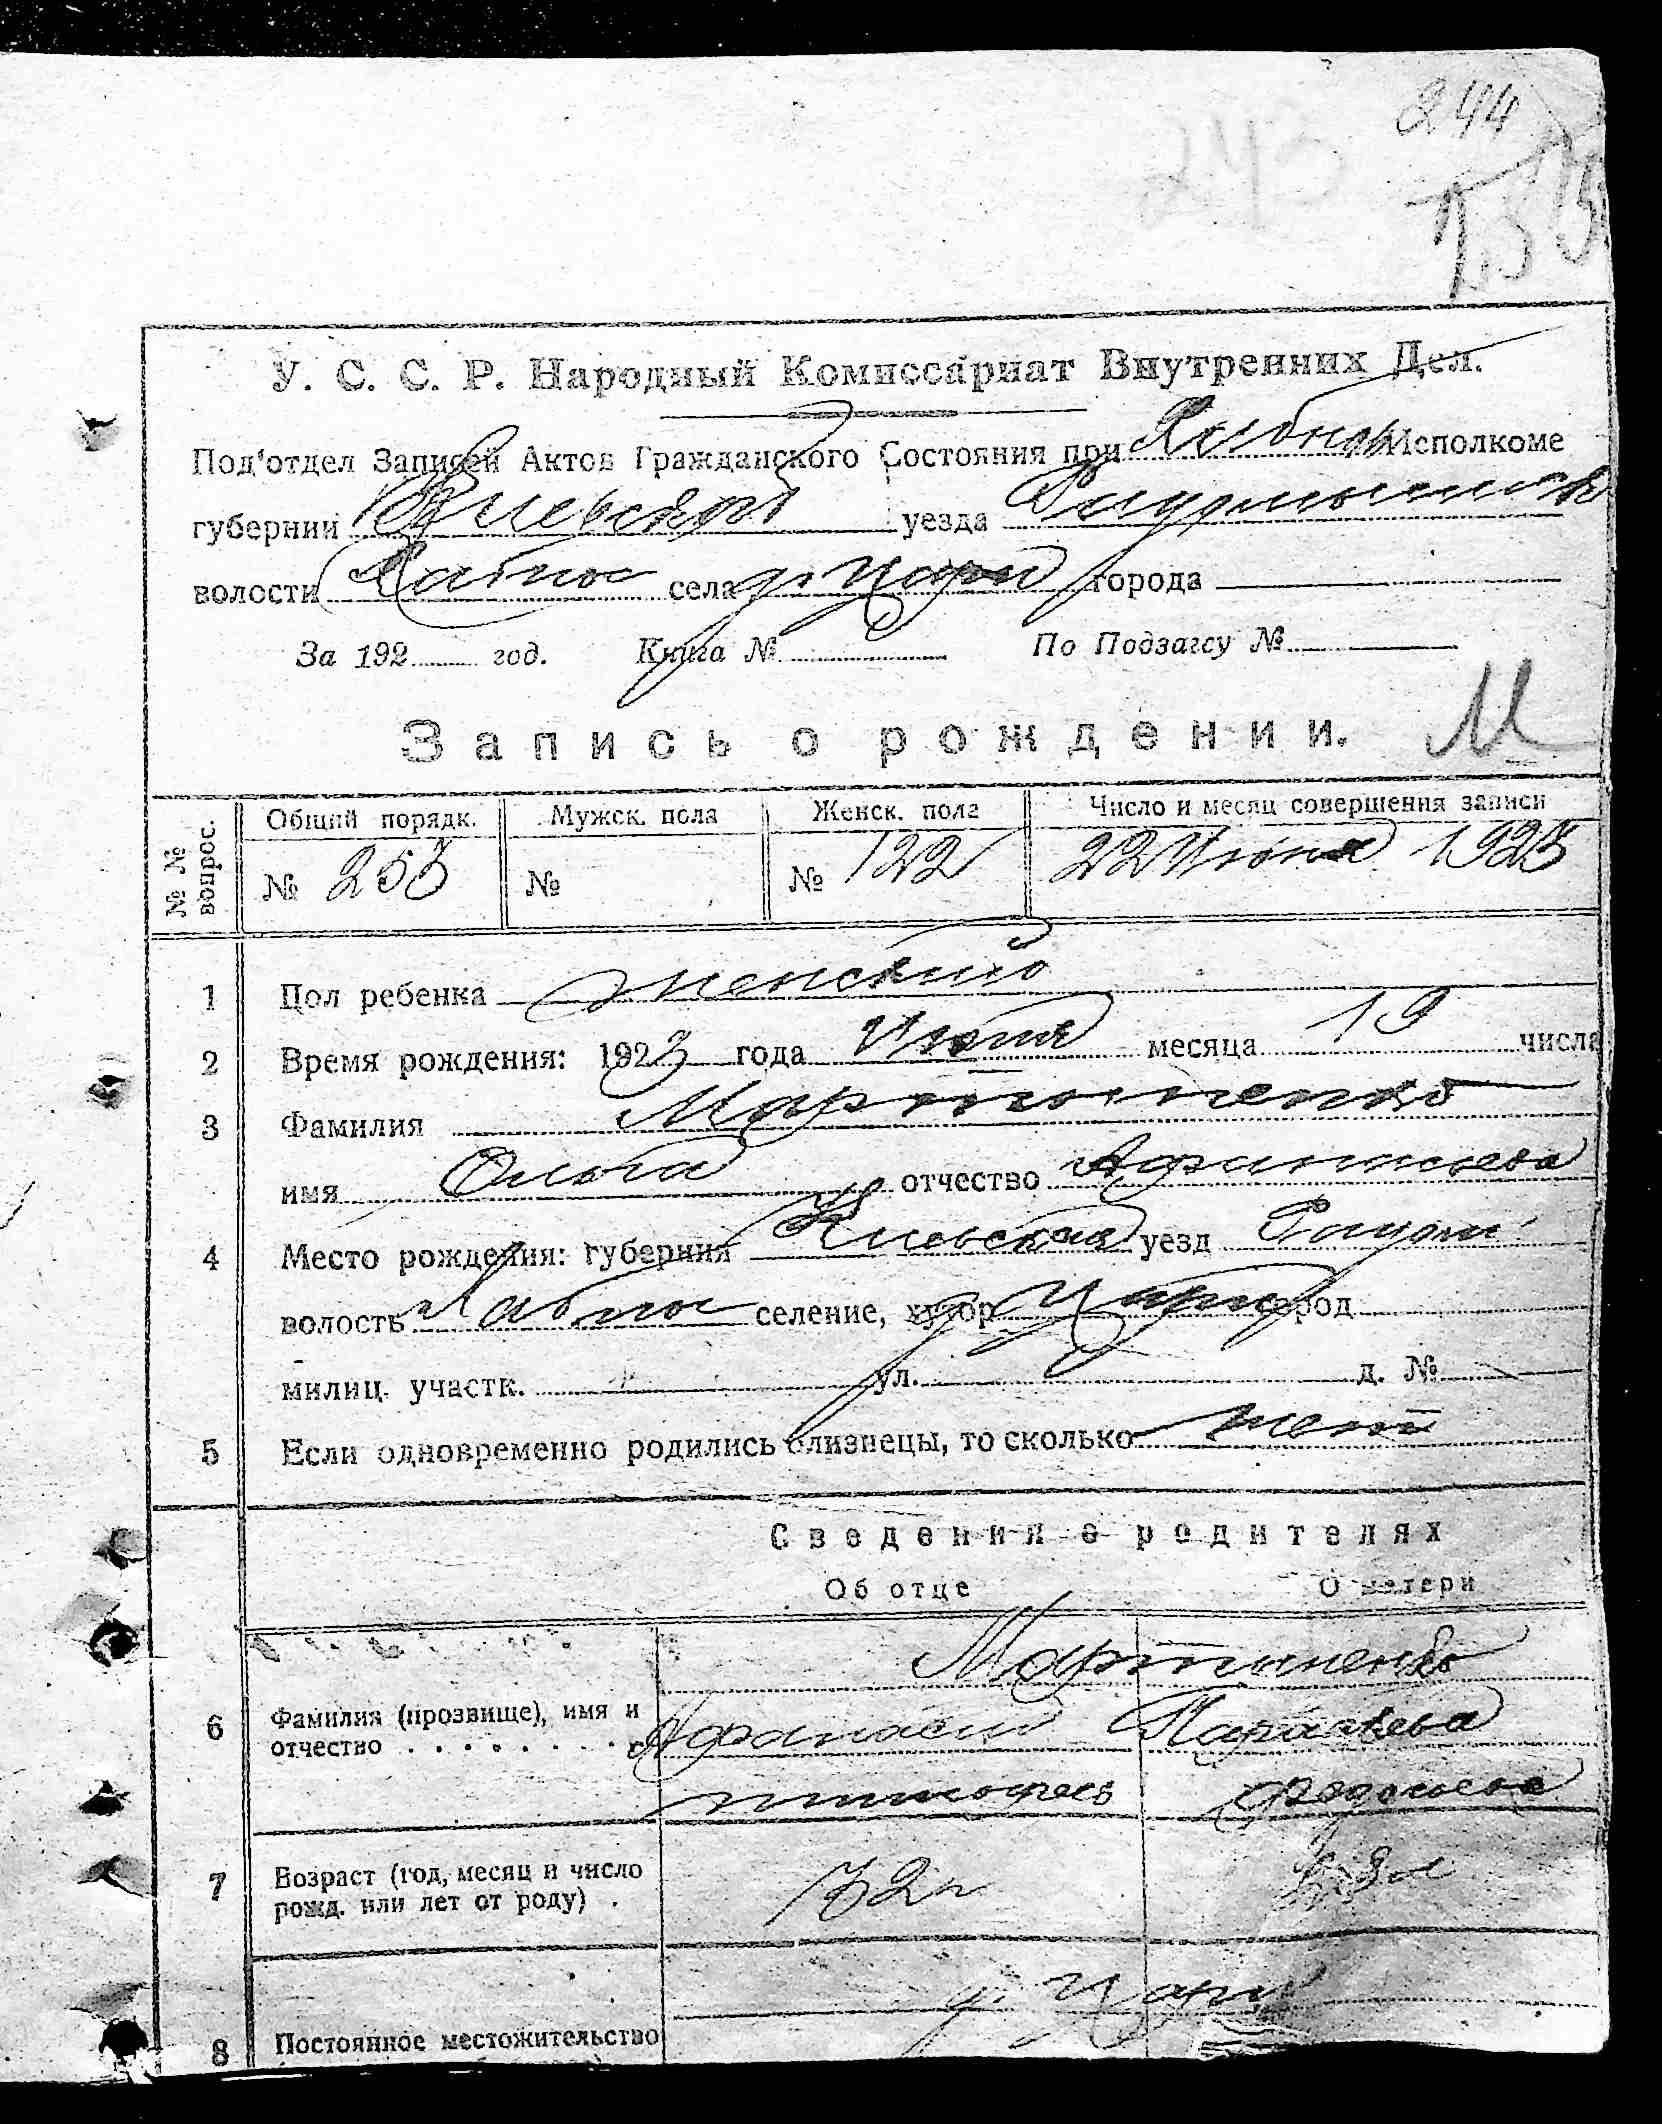 244
243
У. С. С. Р. Народный Комиссариат Внутренних Дел.
Под'отдел Записей Актов Гражданского Состояния при Хабном Исполкоме
губернии Киевской уезда
волости Хабно села д. города
За 192 год. Книга № По Подзагсу №
Запись о рождении. М
№ № вопрос. Общий порядк. Мужск. пола Женск. пола Число и месяц совершения записи
№ 253 № № 122 22 Июня 1923
1 Пол ребенка женский
2 Время рождения: 1923 года Июня месяца 19 числа
3 Фамилия Мартиненко
имя Ольга отчество
4 Место рождения: губерния Киевская уезд Радом
волость Хабно селение, хутор город
милиц. участк. ул. д. №
5 Если одновременно родились близнецы, то сколько нет
Сведения о родителях
Об отце О матери
Мартиненко
6 Фамилия (прозвище), имя и отчество Афанасий
Федосьева
7 Возраст (год, месяц и число рожд. или лет от роду) 32
8 Постоянное местожительство